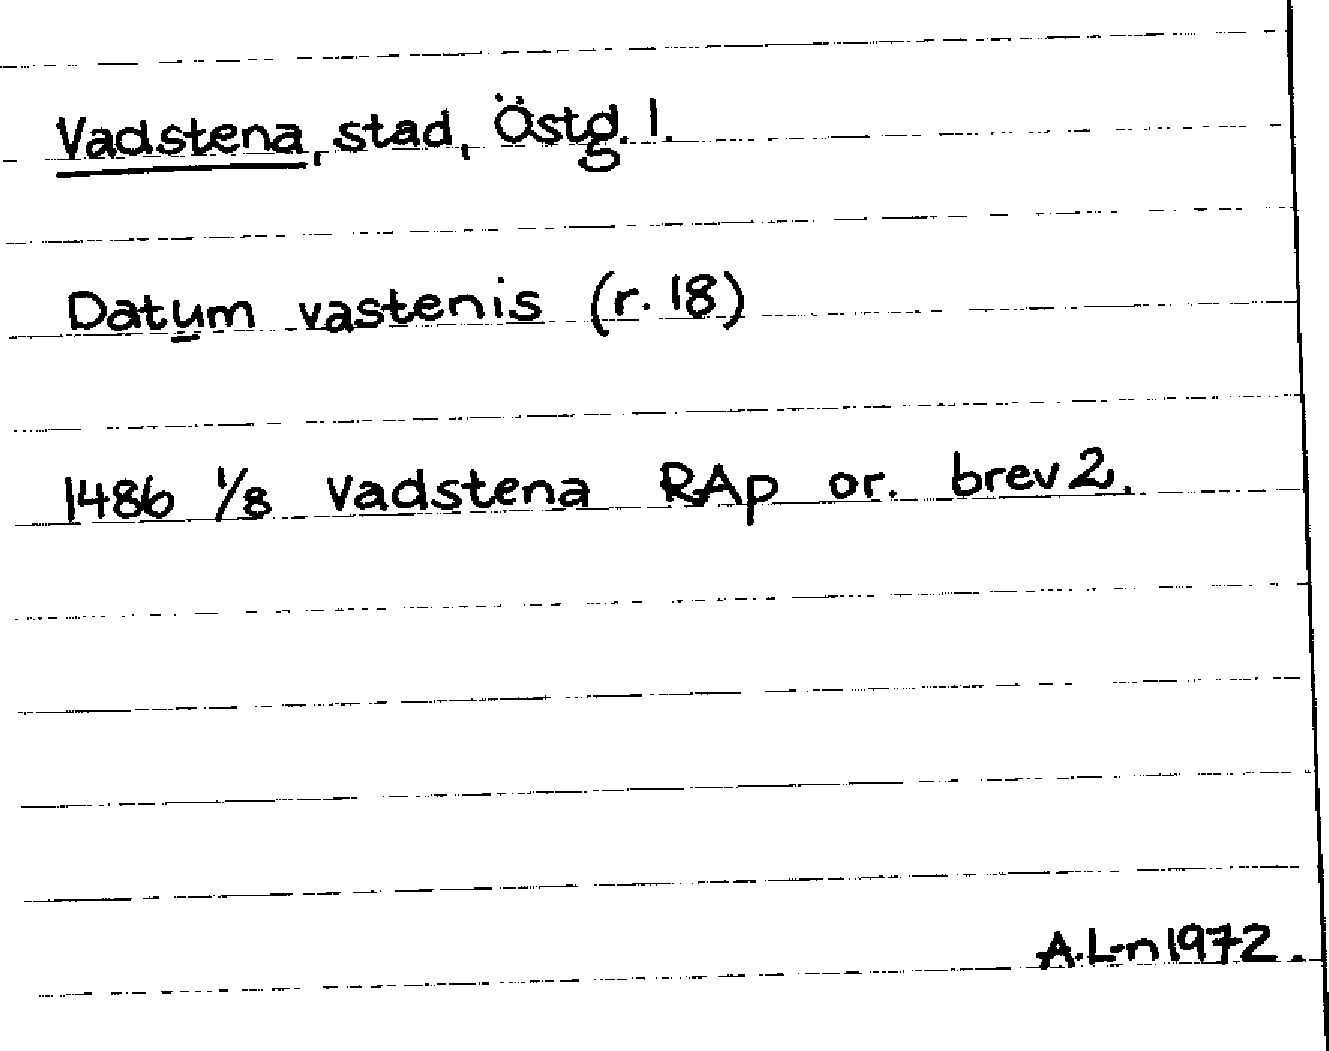 Vadstena, stad, Östg. l.
Datum vastenis (r. 18)
1486 1/8 Vadstena RAp or. brev 2.
A.L-n 1972.